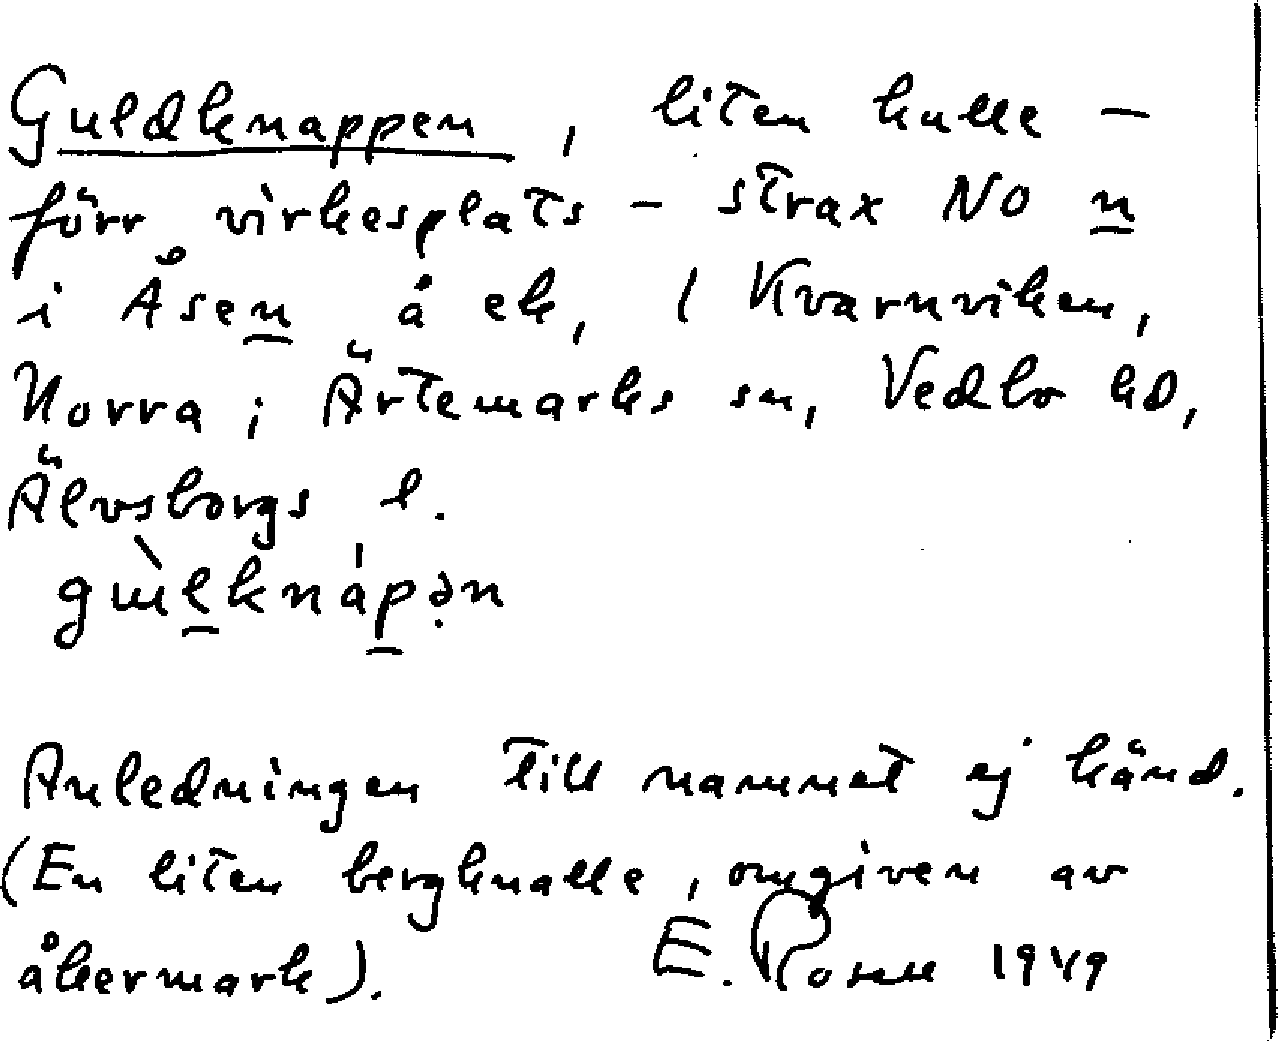 Guldknappen, liten kulle –
förr virkesplats – strax NO n
i Åsen å ek, ( Kvarnviken,
Norra i Ärtemarks sn, Vedbo hd,
Älvsborgs l.
Anledningen till namnet ej känd.
(En liten bergknalle, omgiven av
åkermark). E. Rosell 1949